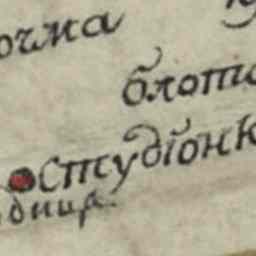 очма
блото
Студїонк
дница